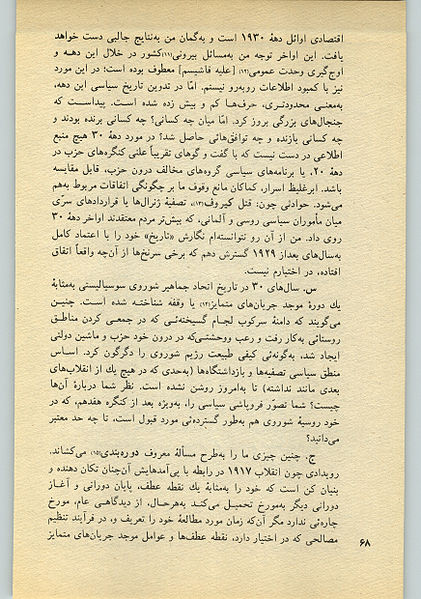 اقتصادی اوائل دههٔ ۱۹۳۰ است و به‌گمان من به‌نتایج جالبی دست خواهد
یافت. این اواخر توجه من به‌مسائل بیرونی(۱۱)کشور در خلال این دهـه و
اوج‌گیری وحدت عمومی(۱۲) [علیه فاشیسم] معطوف بوده است؛ در این مورد
نیز با کمبود اطلاعات روبه‌رو نیستم. امّا در تدوین تاریخ سیاسی این دهه،
به‌معنـی محدودتـری، حرف‌هـا کم و بیش زده شده اسـت. پیداسـت که
جنجال‌های بزرگی بروز کرد. امّا میان چه کسانی؟ چه کسانی برنده بودند و
چه کسانی بازنده و چه توافق‌هائی حاصل شد؟ در مورد دههٔ ۳۰ هیچ منبع
اطلاعی در دست نیست که با گفت و گوهای تقریباً علنی کنگره‌های حزب در
دههٔ ۲۰، یا برنامه‌های سیاسی گروه‌های مخالف درون حزب، قابل مقایسه
باشد. ابرغلیظ اسرار، کماکان مانع وقوف ما بر چگونگی اتفاقات مربوط به‌هم
می‌شود. حوادثی چون: قتل کیروف(۱۳)، تصفیهٔ ژنرال‌ها یا قراردادهای سرّی
میان مأموران سیاسی روسی و آلمانی، که بیش‌تر مردم معتقدند اواخر دههٔ ۳۰
روی داد. من از آن رو نتوانسته‌ام نگارش «تاریخ» خود را با اعتماد کامل
به‌سال‌های بعداز ۱۹۲۹ گسترش دهم که برخی سرنخ‌ها از آن‌چه واقعاً اتفاق
افتاده، در اختیارم نیست.
س. سال‌های ۳۰ در تاریخ اتحاد جماهیر شوروی سوسیالیستی به‌مثابهٔ
یك دورهٔ موجد جریان‌های متمایز(۱۴) یا وقفه شناختـه شده اسـت. چنیـن
می‌گویند که دامنهٔ سرکوب لجـام گسیخته‌ئـی که در جمعـی کردن مناطـق
روستائی به‌کار رفت و رعب ووحشتـی‌که در درون خود حزب و ماشین دولتی
ایجاد شد، به‌گونه‌ئی کیفی طبیعت رژیم شوروی را دگرگون کرد. اسـاس
منطق سیاسی تصفیه‌ها و بازداشتگاه‌ها (به‌حدی که در هیچ یك از انقلاب‌های
بعدی مانند نداشته) تا به‌امروز روشن نشده است. نظر شما دربارهٔ آن‌ها
چیست؟ شما تصوّر فروپاشی سیاسی را، به‌ویژه بعد از کنگره هفدهم، که در
خود روسیهٔ شوروی هم به‌طور گسترده‌ئی مورد قبول است، تا چه حد معتبر
می‌دانید؟
ج. چنین چیزی ما را به‌طرح مسألهٔ معروف دوره‌بندی(۱۵) می‌کشاند.
رویدادی چون انقلاب ۱۹۱۷ در رابطه با پی‌آمدهایش آن‌چنان تکان دهنده و
بنیان کن است که خود را به‌مثابهٔ یك نقطه عطف، پایان دورانی و آغـاز
دورانی دیگر به‌مورخ تحمیل می‌کنـد به‌هرحـال، از دیدگاهـی عام، مورخ
چاره‌ئی ندارد مگر آن‌که زمان مورد مطالعهٔ خود را تعریف و، در فرآیند تنظیم
مصالحی که در اختیار دارد، نقطه عطف‌ها و عوامل موجد جریان‌های متمایز
۶۸